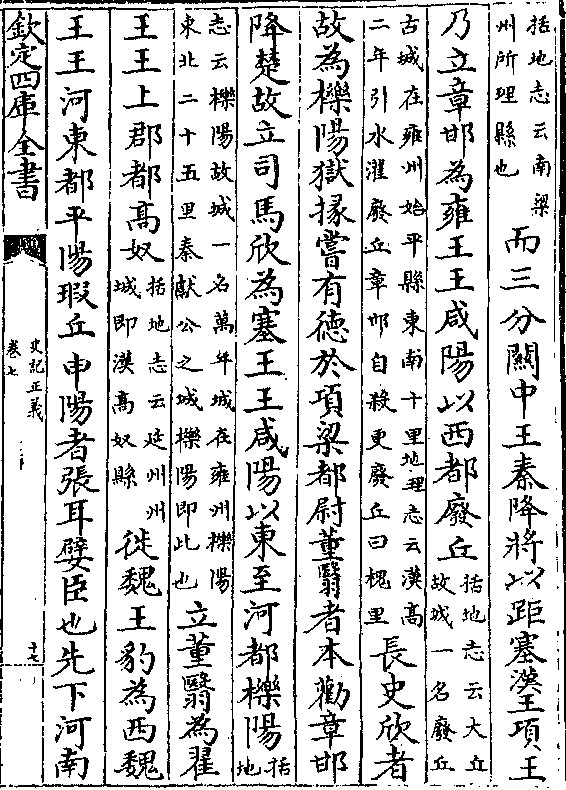 括地志云南梁
州所理縣也
而三分關中王秦降將以距塞漢王項王
乃立章邯為雍王王咸陽以西都廢丘
括地志云大丘
故城一名廢丘
古城在雍州始平縣東南十里地理志云漢高
二年引水灌廢丘章邯自殺更廢丘曰槐里
長史欣者
故為櫟陽獄掾嘗有德於項梁都尉董翳者本勸章邯
降楚故立司馬欣為塞王王咸陽以東至河都櫟陽
括
地
志云櫟陽故城一名萬年城在雍州櫟陽
東北二十五里秦獻公之城櫟陽即此也
立董翳為翟
王王上郡都高奴
括地志云延州州
城即漢高奴縣
徙魏王豹為西魏
王王河東都平陽瑕丘申陽者張耳嬖臣也先下河南
欽定四庫全書
史記正義
卷七
十七